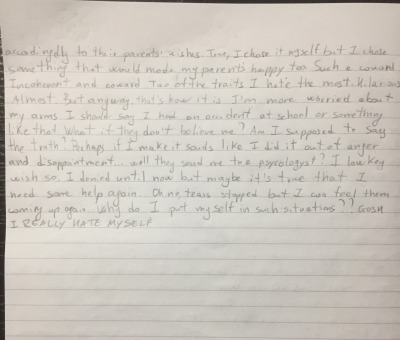 accordingly to their parents' wishes. True, I chose it myself but I chose
something that would made my parents happy too Such a coward
Incoherent and coward Two of the traits I hate the most. Hilarious
Almost. But anyway, that's how it is I'm more worried about
my arms I should say I had an accident at school or something
like that What if they don't believe me? Am I supposed to say
the truth? Perhaps if I make it sounds like I did it out of anger
and disappointment... will they send me to a psycologist? I low key
wish so. I denied until now but maybe it's true that I
need some help again. Oh no, tears stopped but I can feel them
coming up again Why do I put myself in such situations?? Gosh
I REALLY HATE MYSELF